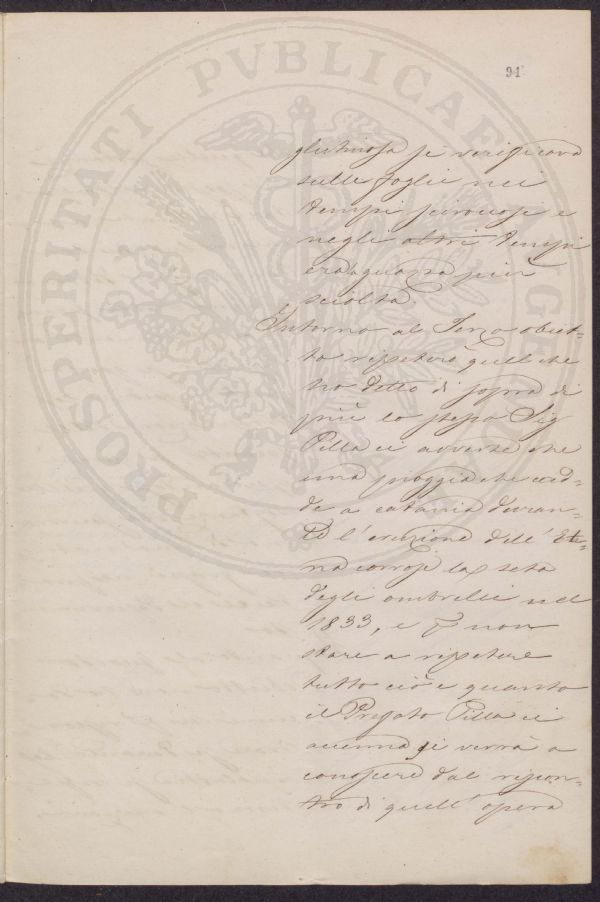 94
glutinosa si verificava
sulle foglie nei
tempi scirocosi e
negli altri tempi
era quagza piu
sciolta.
Intorno al Terzo obiet=
to ripeterò quell che
ho detto di sopra di
più lo stesso Sig
Pilla ci averte che
una pioggia che cad=
de a catania duran=
te l'eruzione dell'Et=
na corrose la seta
degli ombrelli nel
1833, e non
stare a ripetere
tutto ciò e quanto
il Pregato Pilla ci
accenna si verrà a
conoscere dal riscon=
tro di quell'opera
PROSPERITATI PVBLICAE